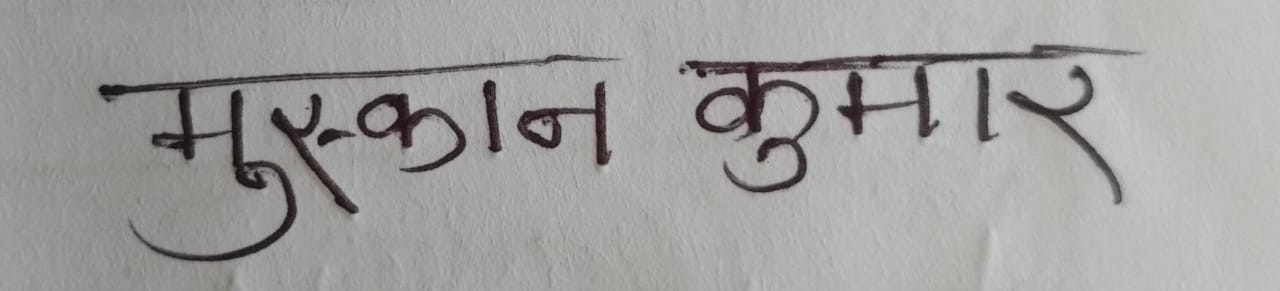 मुस्कान कुमार